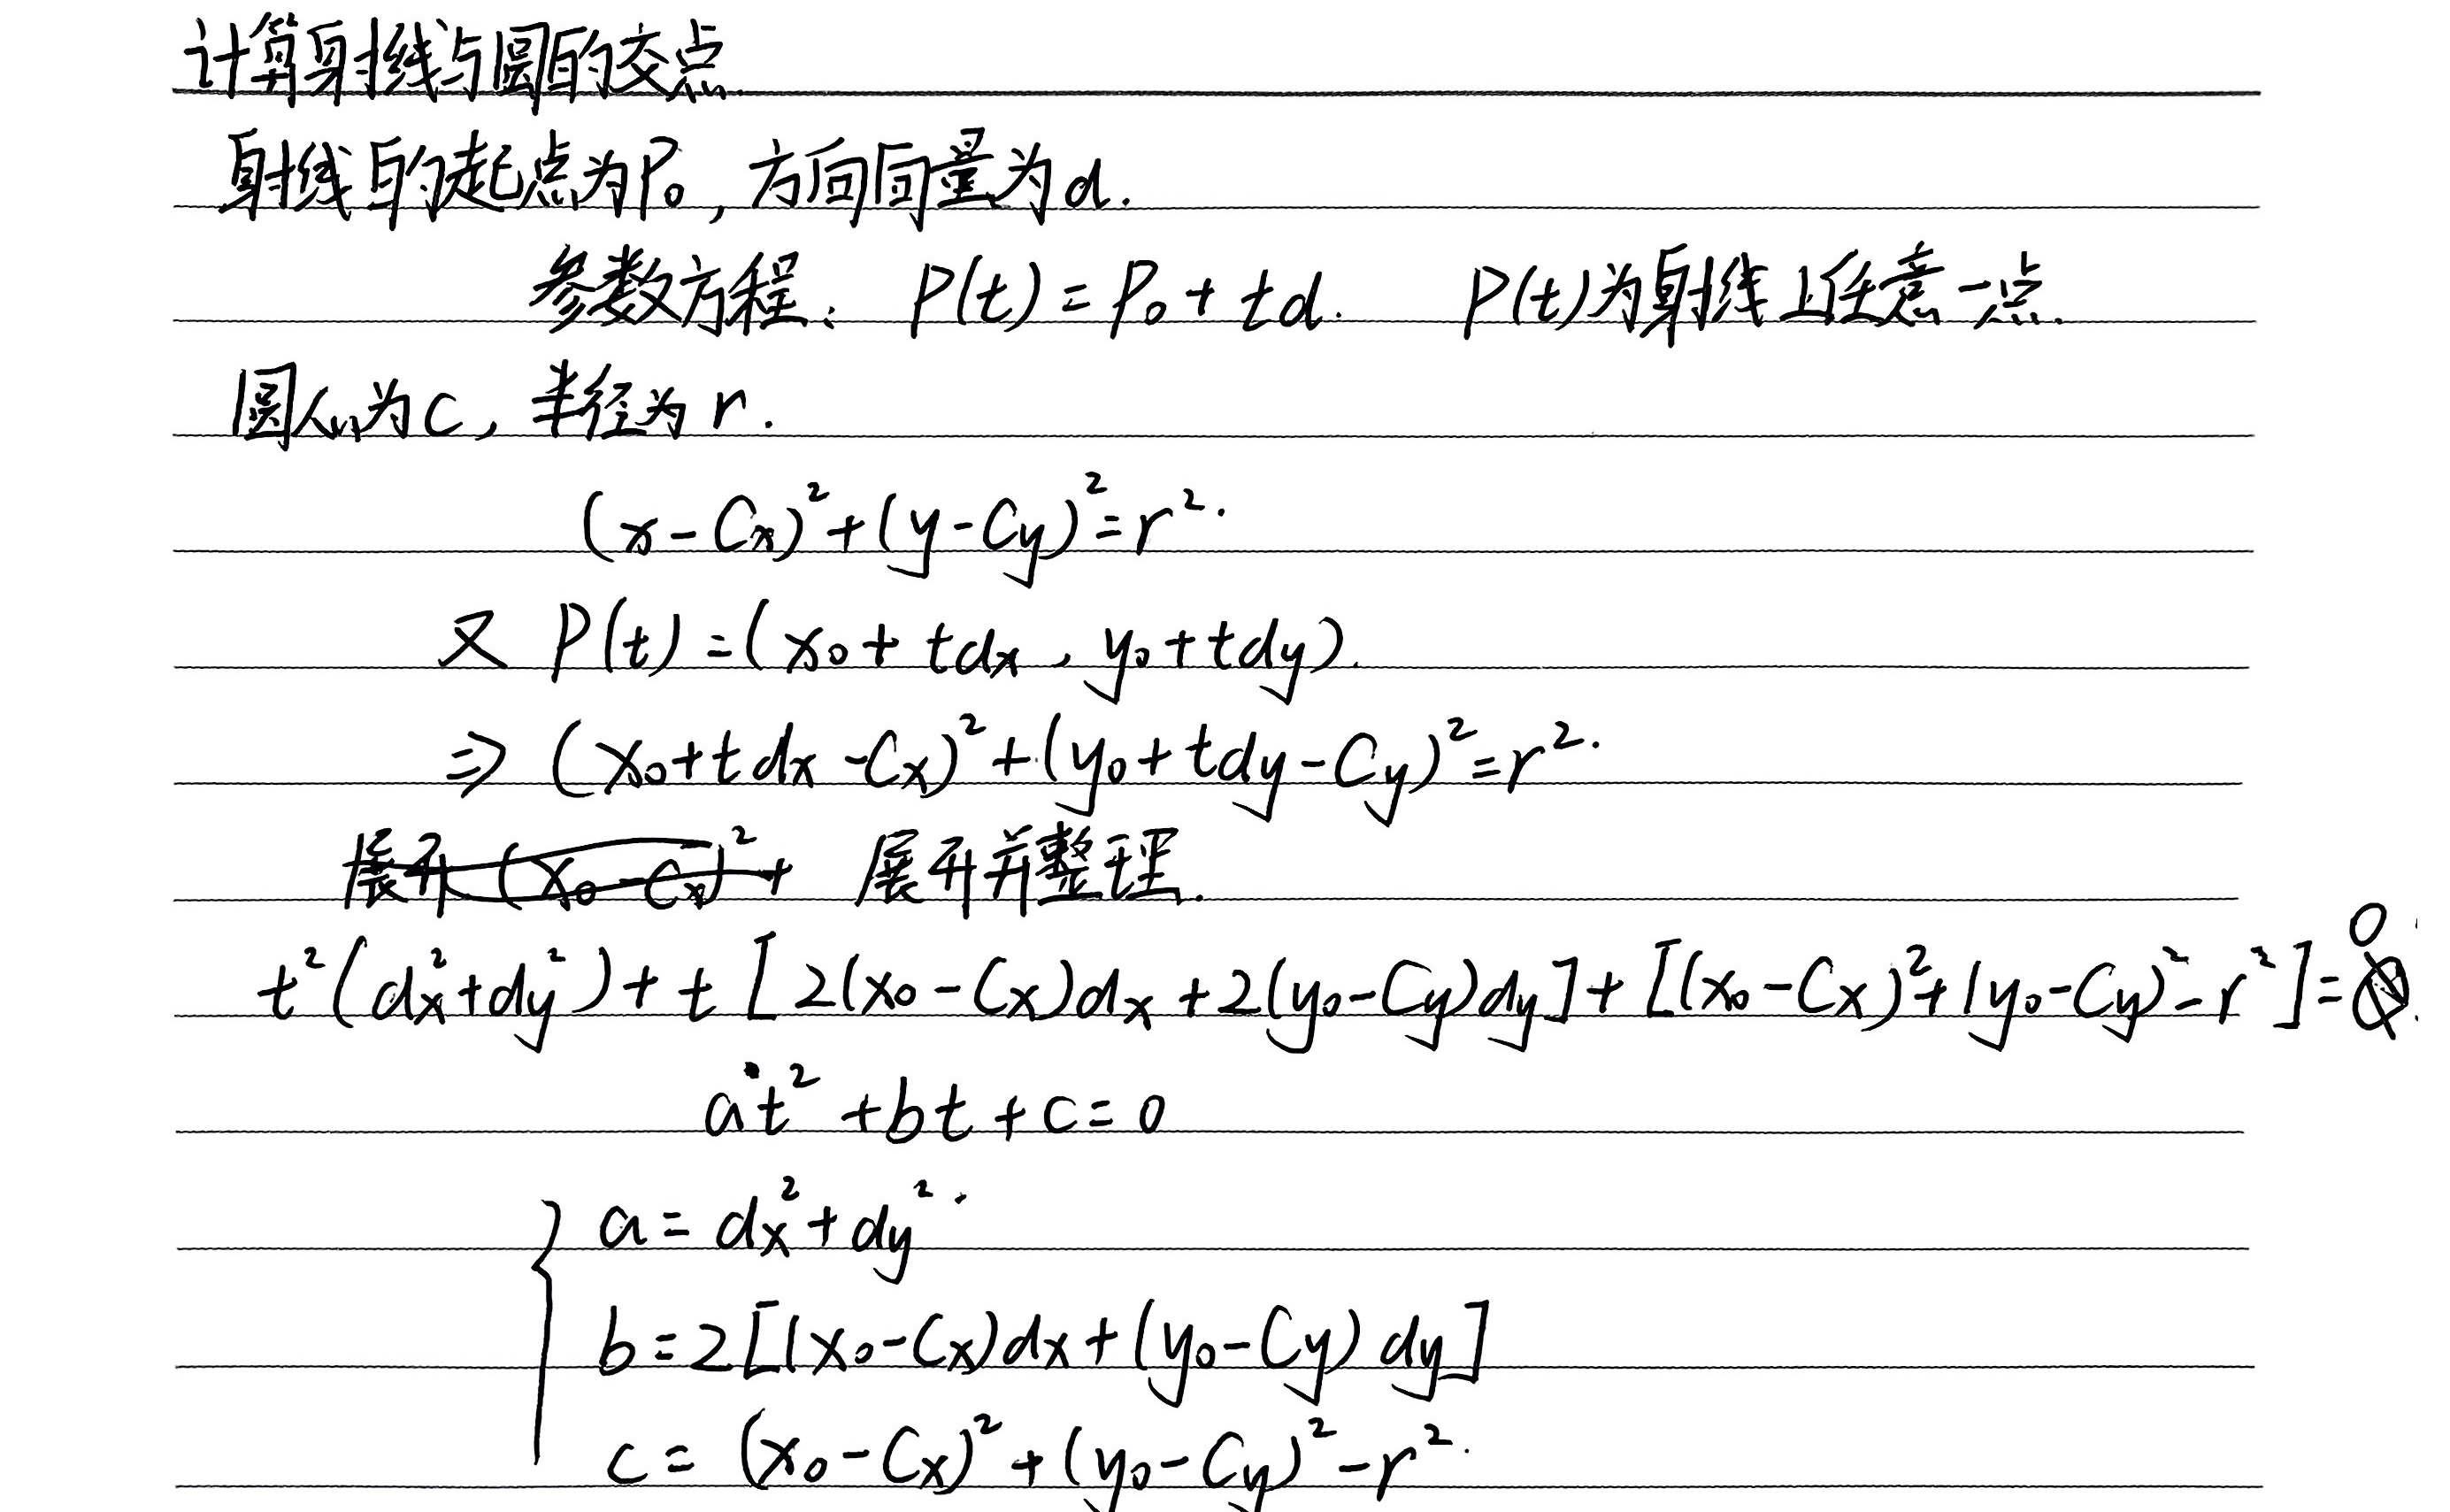 计算射线与圆的交点.
射线的起点为P₀, 方向向量为d.
参数方程: P(t)=P₀+td. P(t)为射线上任意一点.
圆心为C, 半径为r.
(x-Cx)²+(y-Cy)²=r².
又 P(t)=(x₀+tdx, y₀+tdy).
⇒ (x₀+tdx-Cx)²+(y₀+tdy-Cy)²=r².
展开 (x₀-Cx)²+ 展开并整理.
t²(dx²+dy²)+t[2(x₀-Cx)dx+2(y₀-Cy)dy]+[(x₀-Cx)²+(y₀-Cy)²-r²]=0
at²+bt+c=0
a=dx²+dy².
b=2[(x₀-Cx)dx+(y₀-Cy)dy]
c=(x₀-Cx)²+(y₀-Cy)²-r².